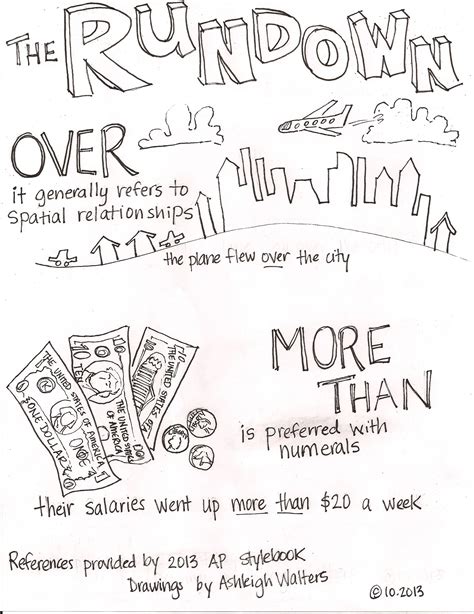 THE RUNDOWN
OVER
it generally refers to
spatial relationships
the plane flew over the city
MORE
THAN
is preferred with
numerals
THE UNITED STATES OF AMERICA
ONE DOLLAR
ONE
10
TEN
THE UNITED STATES
OF AMERICA
10
THE UNITED
STATES
their salaries went up more than $20 a week
References provided by 2013 AP stylebook
Drawings by Ashleigh Walters
©10.2013